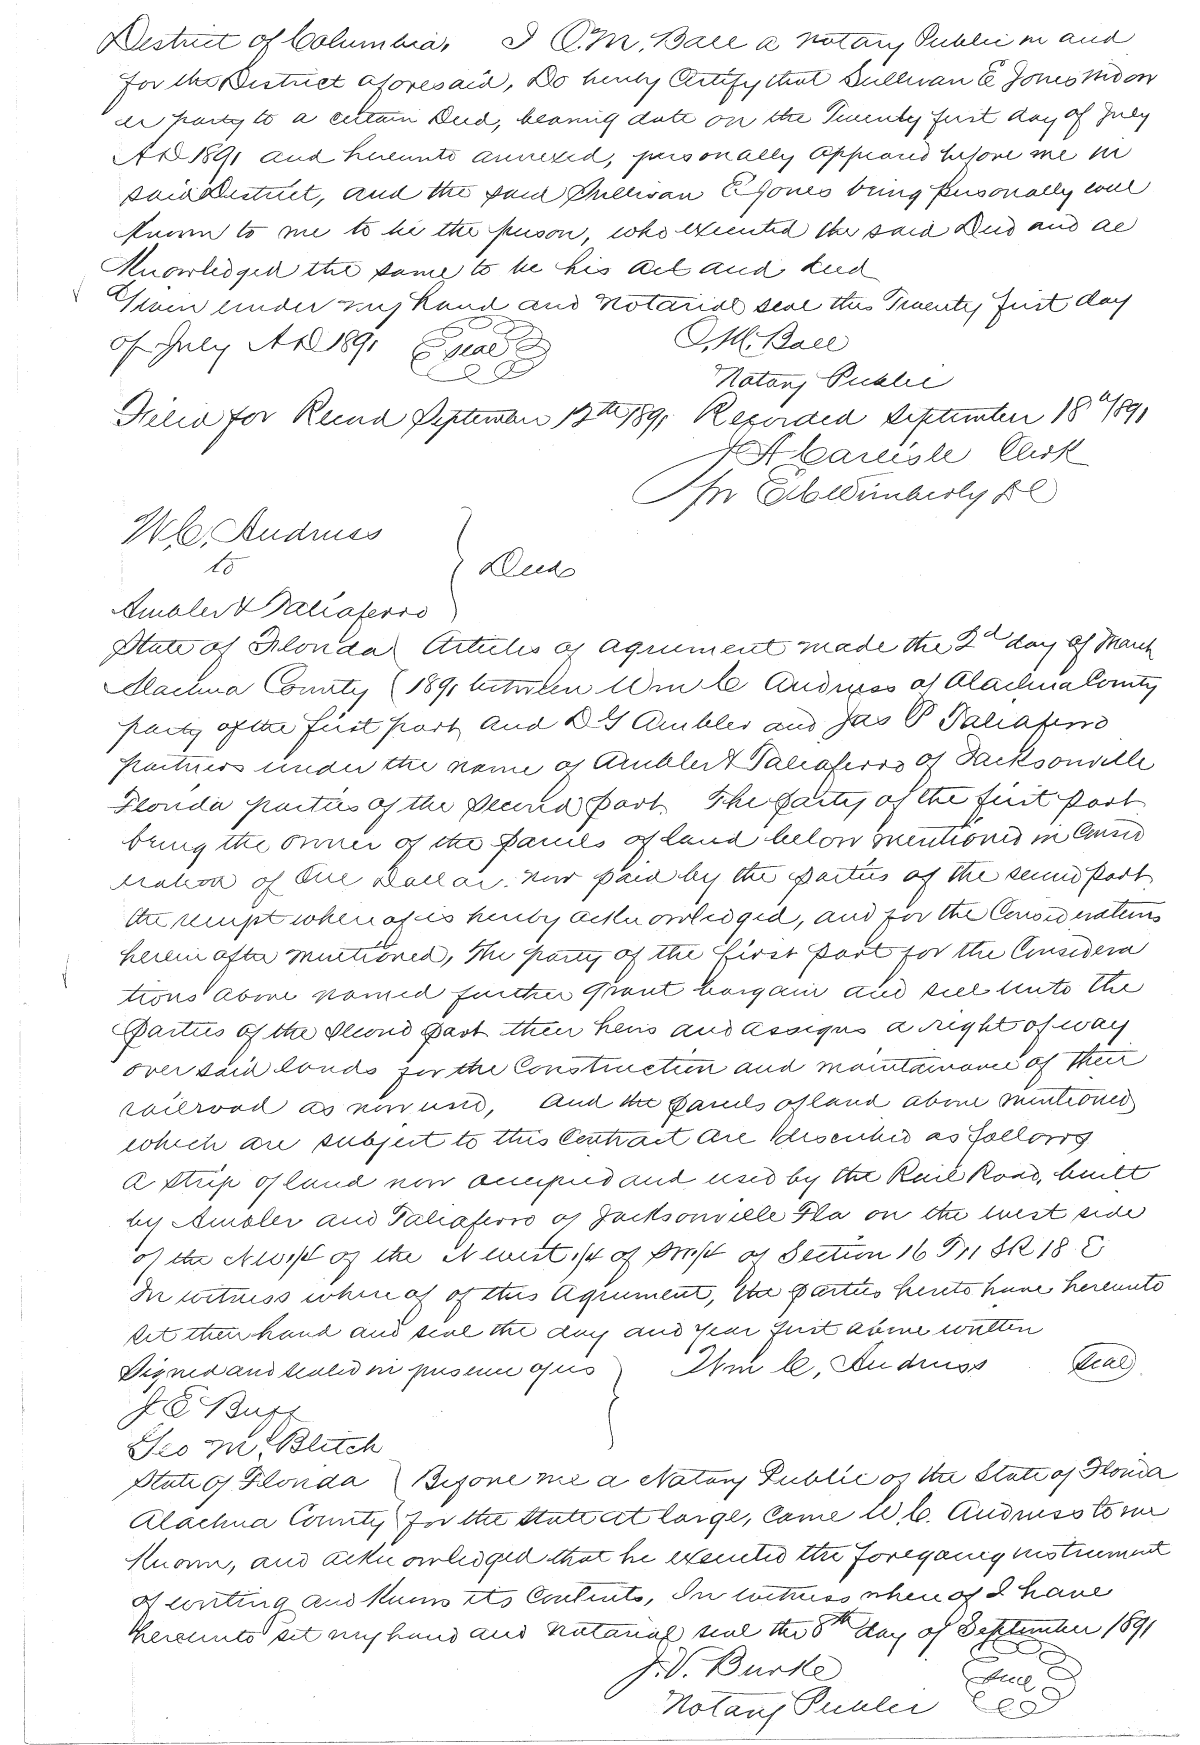 District of Columbia, I O. M. Ball a Notary Public in and
for the District aforesaid, Do hereby Certify that Sullivan E Jones widow
er party to a certain Deed, bearing date on the Twenty first day of July
AD 1891 and hereunto annexed, personally appeared before me in
said District, and the said Sullivan E Jones being personally well
known to me to be the person, who executed the said Deed and ac
Knowledged the same to be his act and deed
Given under my hand and Notarial seal this Twenty first day
of July AD 1891 seal O. M. Ball
Notary Public
Filed for Record September 12th 1891 Recorded September 18th 1891
J A Carlisle Clerk
Per E C Wimberly DC
W. C. Andruss
to
Deed
Ambler & Taliaferro
State of Florida Articles of agreement made the 2d day of March
Alachua County 1891 between Wm C Andruss of Alachua County
party of the first part, and D G Ambler and Jas P Taliaferro
partners under the name of Ambler & Taliaferro of Jacksonville
Florida parties of the Second part. The party of the first part
being the owner of the parcels of land below mentioned in Consid
eration of One Dollar. now paid by the parties of the second part
the receipt where of is hereby acknowledged, and for the Considerations
herein after mentioned, The party of the first part for the Considera
tions above named further grant bargain and sell unto the
Parties of the Second part their heirs and assigns a right of way
over said lands for the Construction and maintainance of their
railroad as now used, And the parcels of land above mentioned
which are subject to this Contract are described as follows
A strip of land now occupied and used by the Rail Road, built
by Ambler and Taliaferro of Jacksonville Fla on the west side
of the NW 1/4 of the N west 1/4 of SW 1/4 of Section 16 T 11 S R 18 E
In witness where of of this Agreement, the parties hereto have hereunto
set their hand and seal the day and year first above written
Signed and sealed in presence of us Wm C, Andruss Seal
J E Buff
Geo M. Blitch
State of Florida Before me a Notary Public of the State of Florida
Alachua County for the State at large, came W. C. Andruss to me
Known, and acknowledged that he executed the foregoing instrument
of writing and knows its Contents, In witness where of I have
hereunto set my hand and Notarial seal the 8th day of September 1891
J. V. Burke
Notary Public Seal